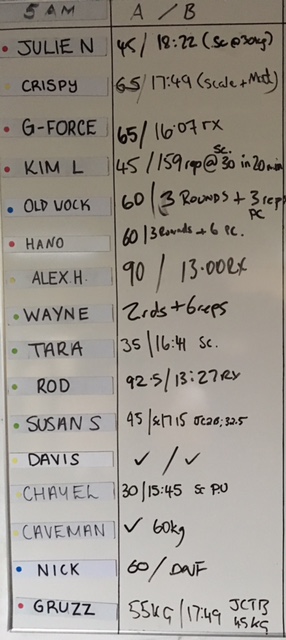 5 AM A / B
JULIE N 45 / 18:22 (Sc @ 30kg)
CRISPY 65 / 17:49 (Scale + Mod)
G-FORCE 65 / 16:07 RX
KIM L 45 / 159 rep @ Sc. 30 in 20 min
OLD WOCK 60 / 3 ROUNDS + 3 reps PC
HANO 60 / 3 Rounds + 6 PC.
ALEX.H. 90 / 13.00RX
WAYNE 2 rds + 6 reps
TARA 35 / 16:41 Sc.
ROD 92.5 / 13:27 RX
SUSAN S 45 / 32.5
DAVIS ✓ / ✓
CHAYEL 30 / 15:45 Sc P.U
CAVEMAN ✓ 60kg
NICK 60 / DNF
GRUZZ 55KG / 17:49 JCTB 45KG